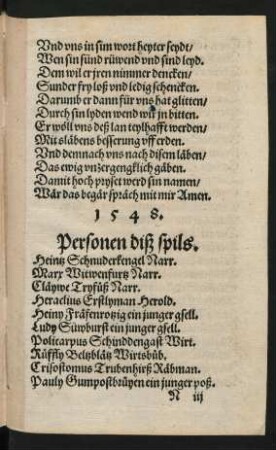 Vnd vns in sim wort heyter seydt/
Wen sin sünd rüwend vnd sind leyd.
Dem wil er jren nimmer dencken/
Sunder fry loß vnd ledig schencken.
Darumb er dann für vns hat glitten/
Durch sin lyden wend wir jn bitten.
Er wöll vns deß lan teylhafft werden/
Mit släbens besserung vff erden.
Vnd demnach vns nach disem läben/
Das ewig vnzergengklich gäben.
Damit hoch pryset werd sin namen/
Wär das begär spräch mit mir Amen.
1548.
Personen diß spils.
Heintz Schnuderkengel Narr.
Marx Witwenfurtz Narr.
Cläywe Tryfüß Narr.
Heraclius Erstlyman Herold.
Heiny Fräsenrotzig ein junger gsell.
Ludy Süwburst ein junger gsell.
Policarpus Schinddengast Wirt.
Rüffly Beltzblätz Wirtsbůb.
Crisostomus Trubenhirß Räbman.
Pauly Gumpostbrüyen ein junger poß.
N iij